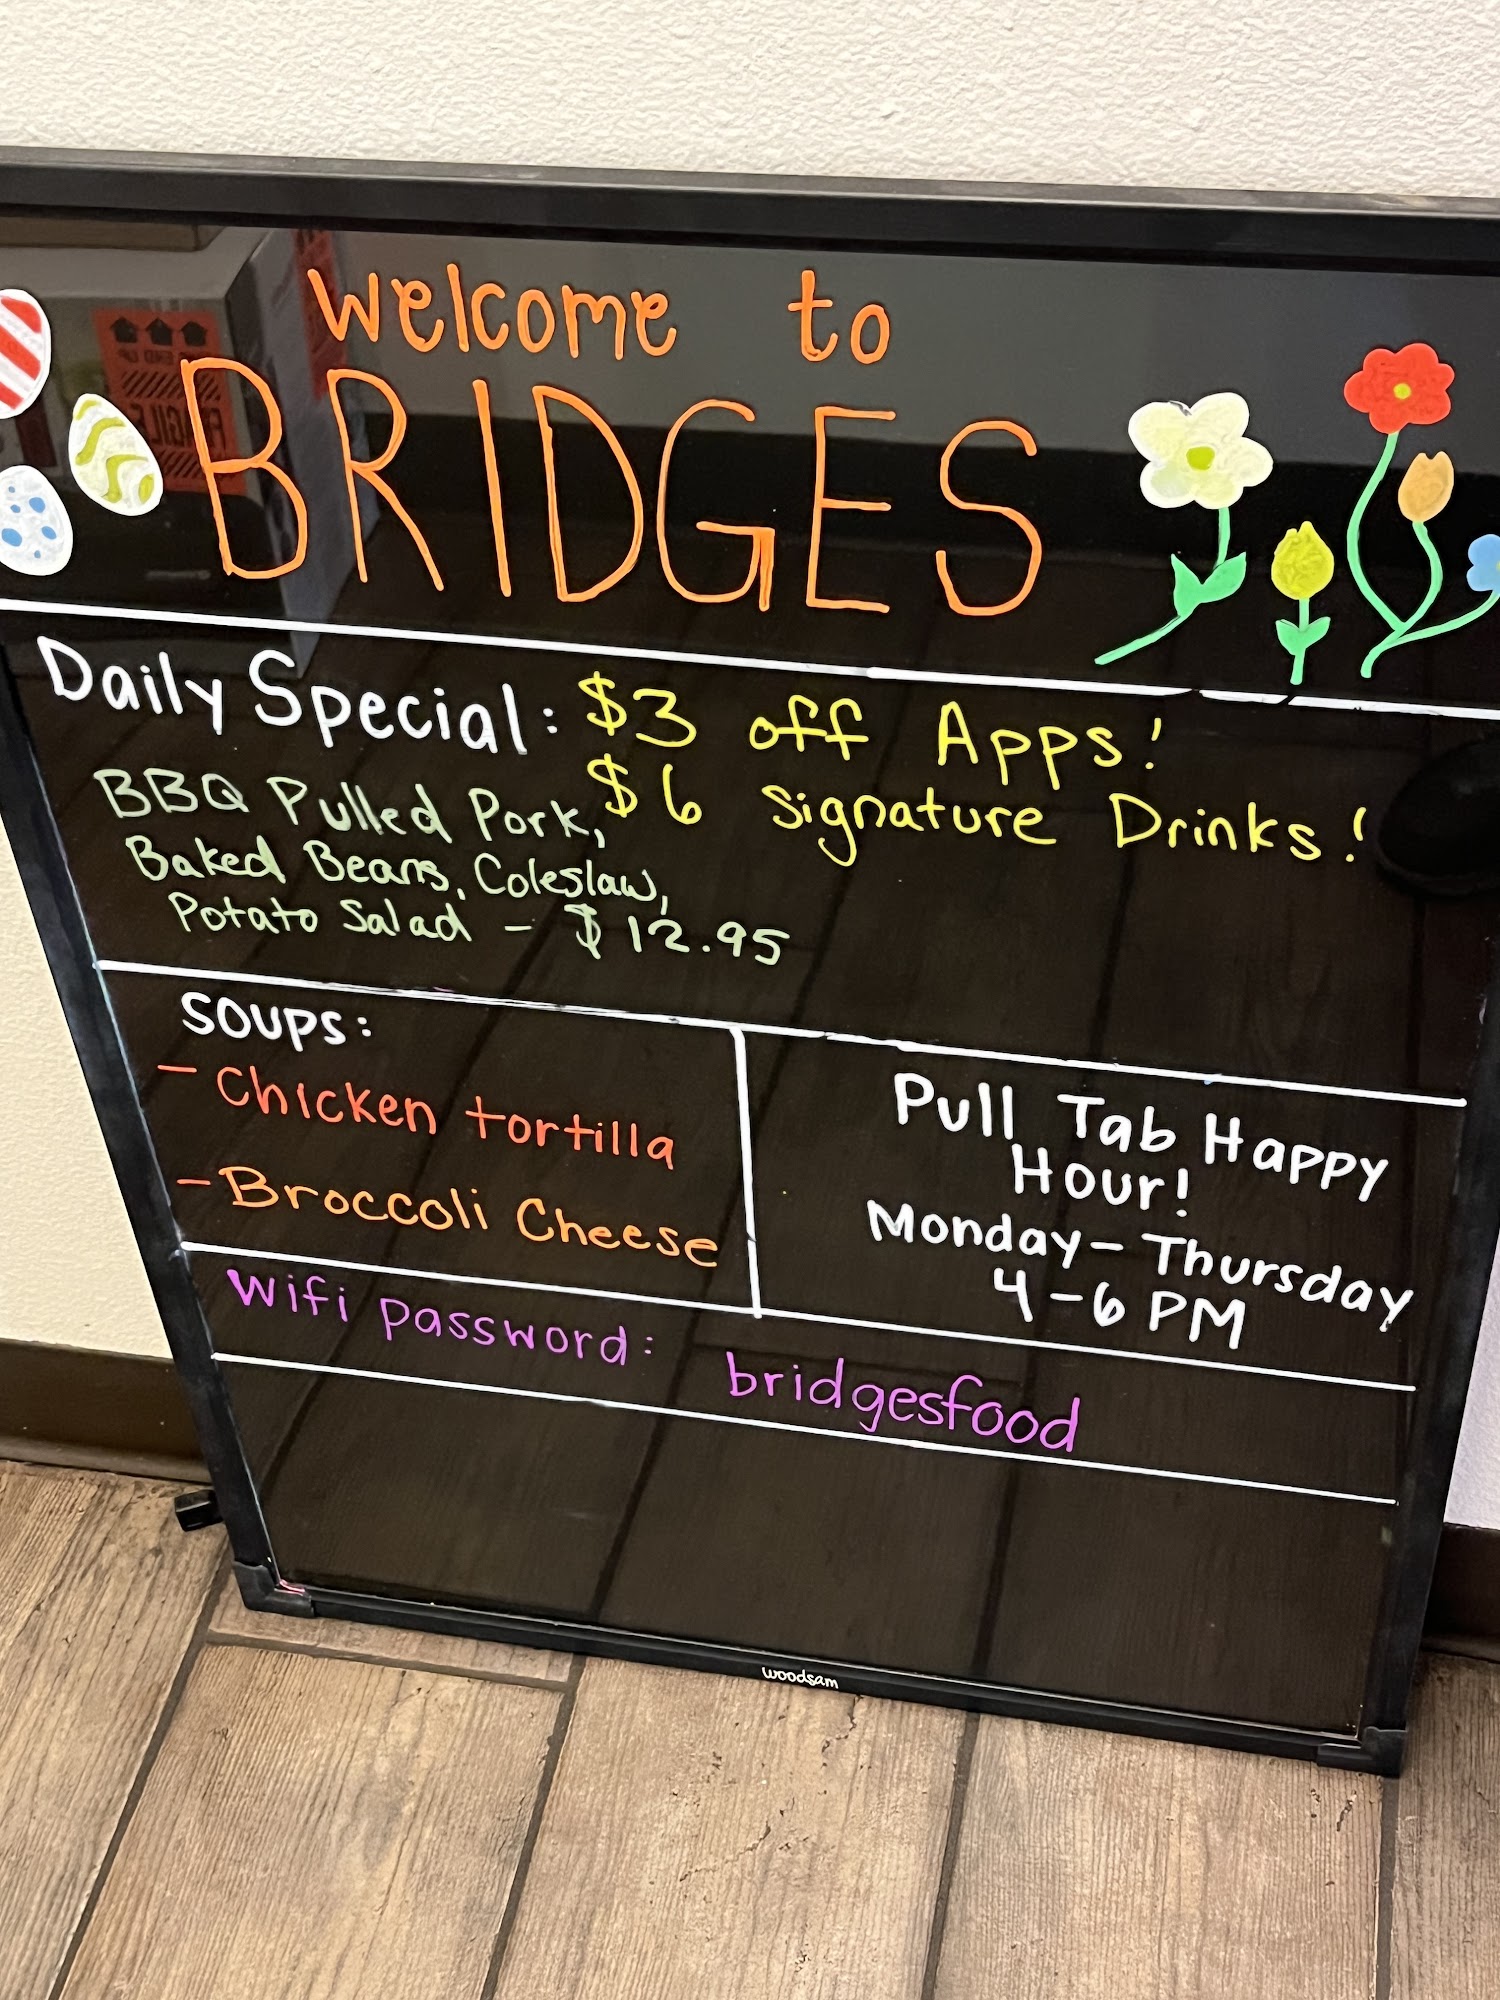 welcome to
BRIDGES
Daily Special: $3 off Apps!
$6 Signature Drinks!
BBQ Pulled Pork,
Baked Beans, Coleslaw,
Potato Salad - $12.95
SOUPS:
- Chicken tortilla
- Broccoli Cheese
Pull Tab Happy
Hour!
Monday - Thursday
4-6 PM
Wifi password: bridgesfood
woodsam